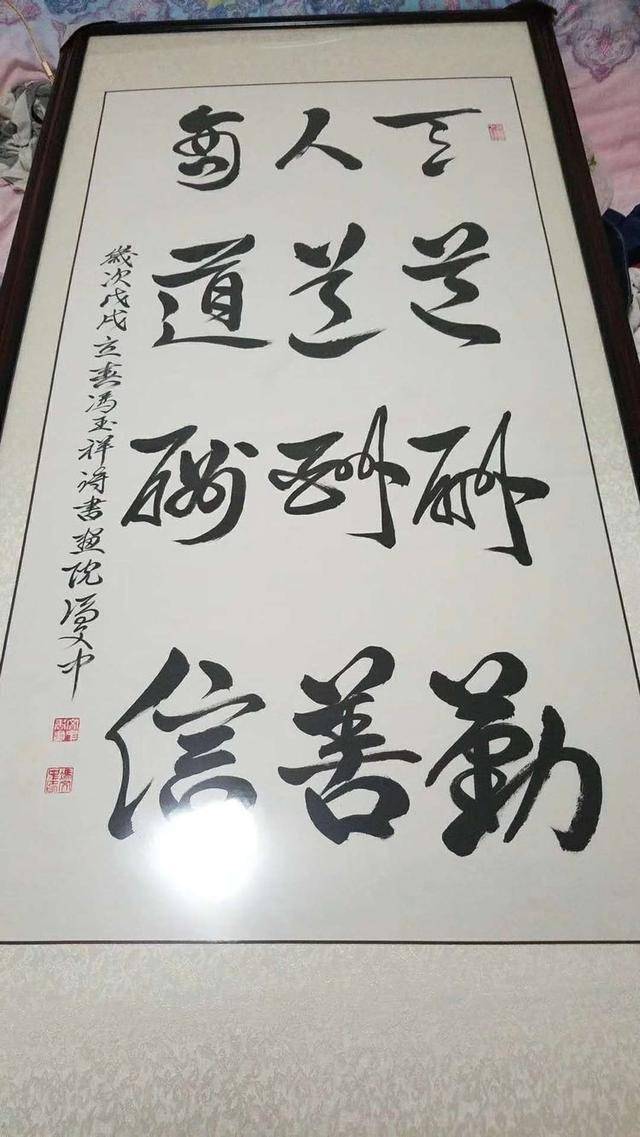 天道酬勤
人道酬善
商道酬信
歲次戊戌立春冯玉祥将书画院冯文中